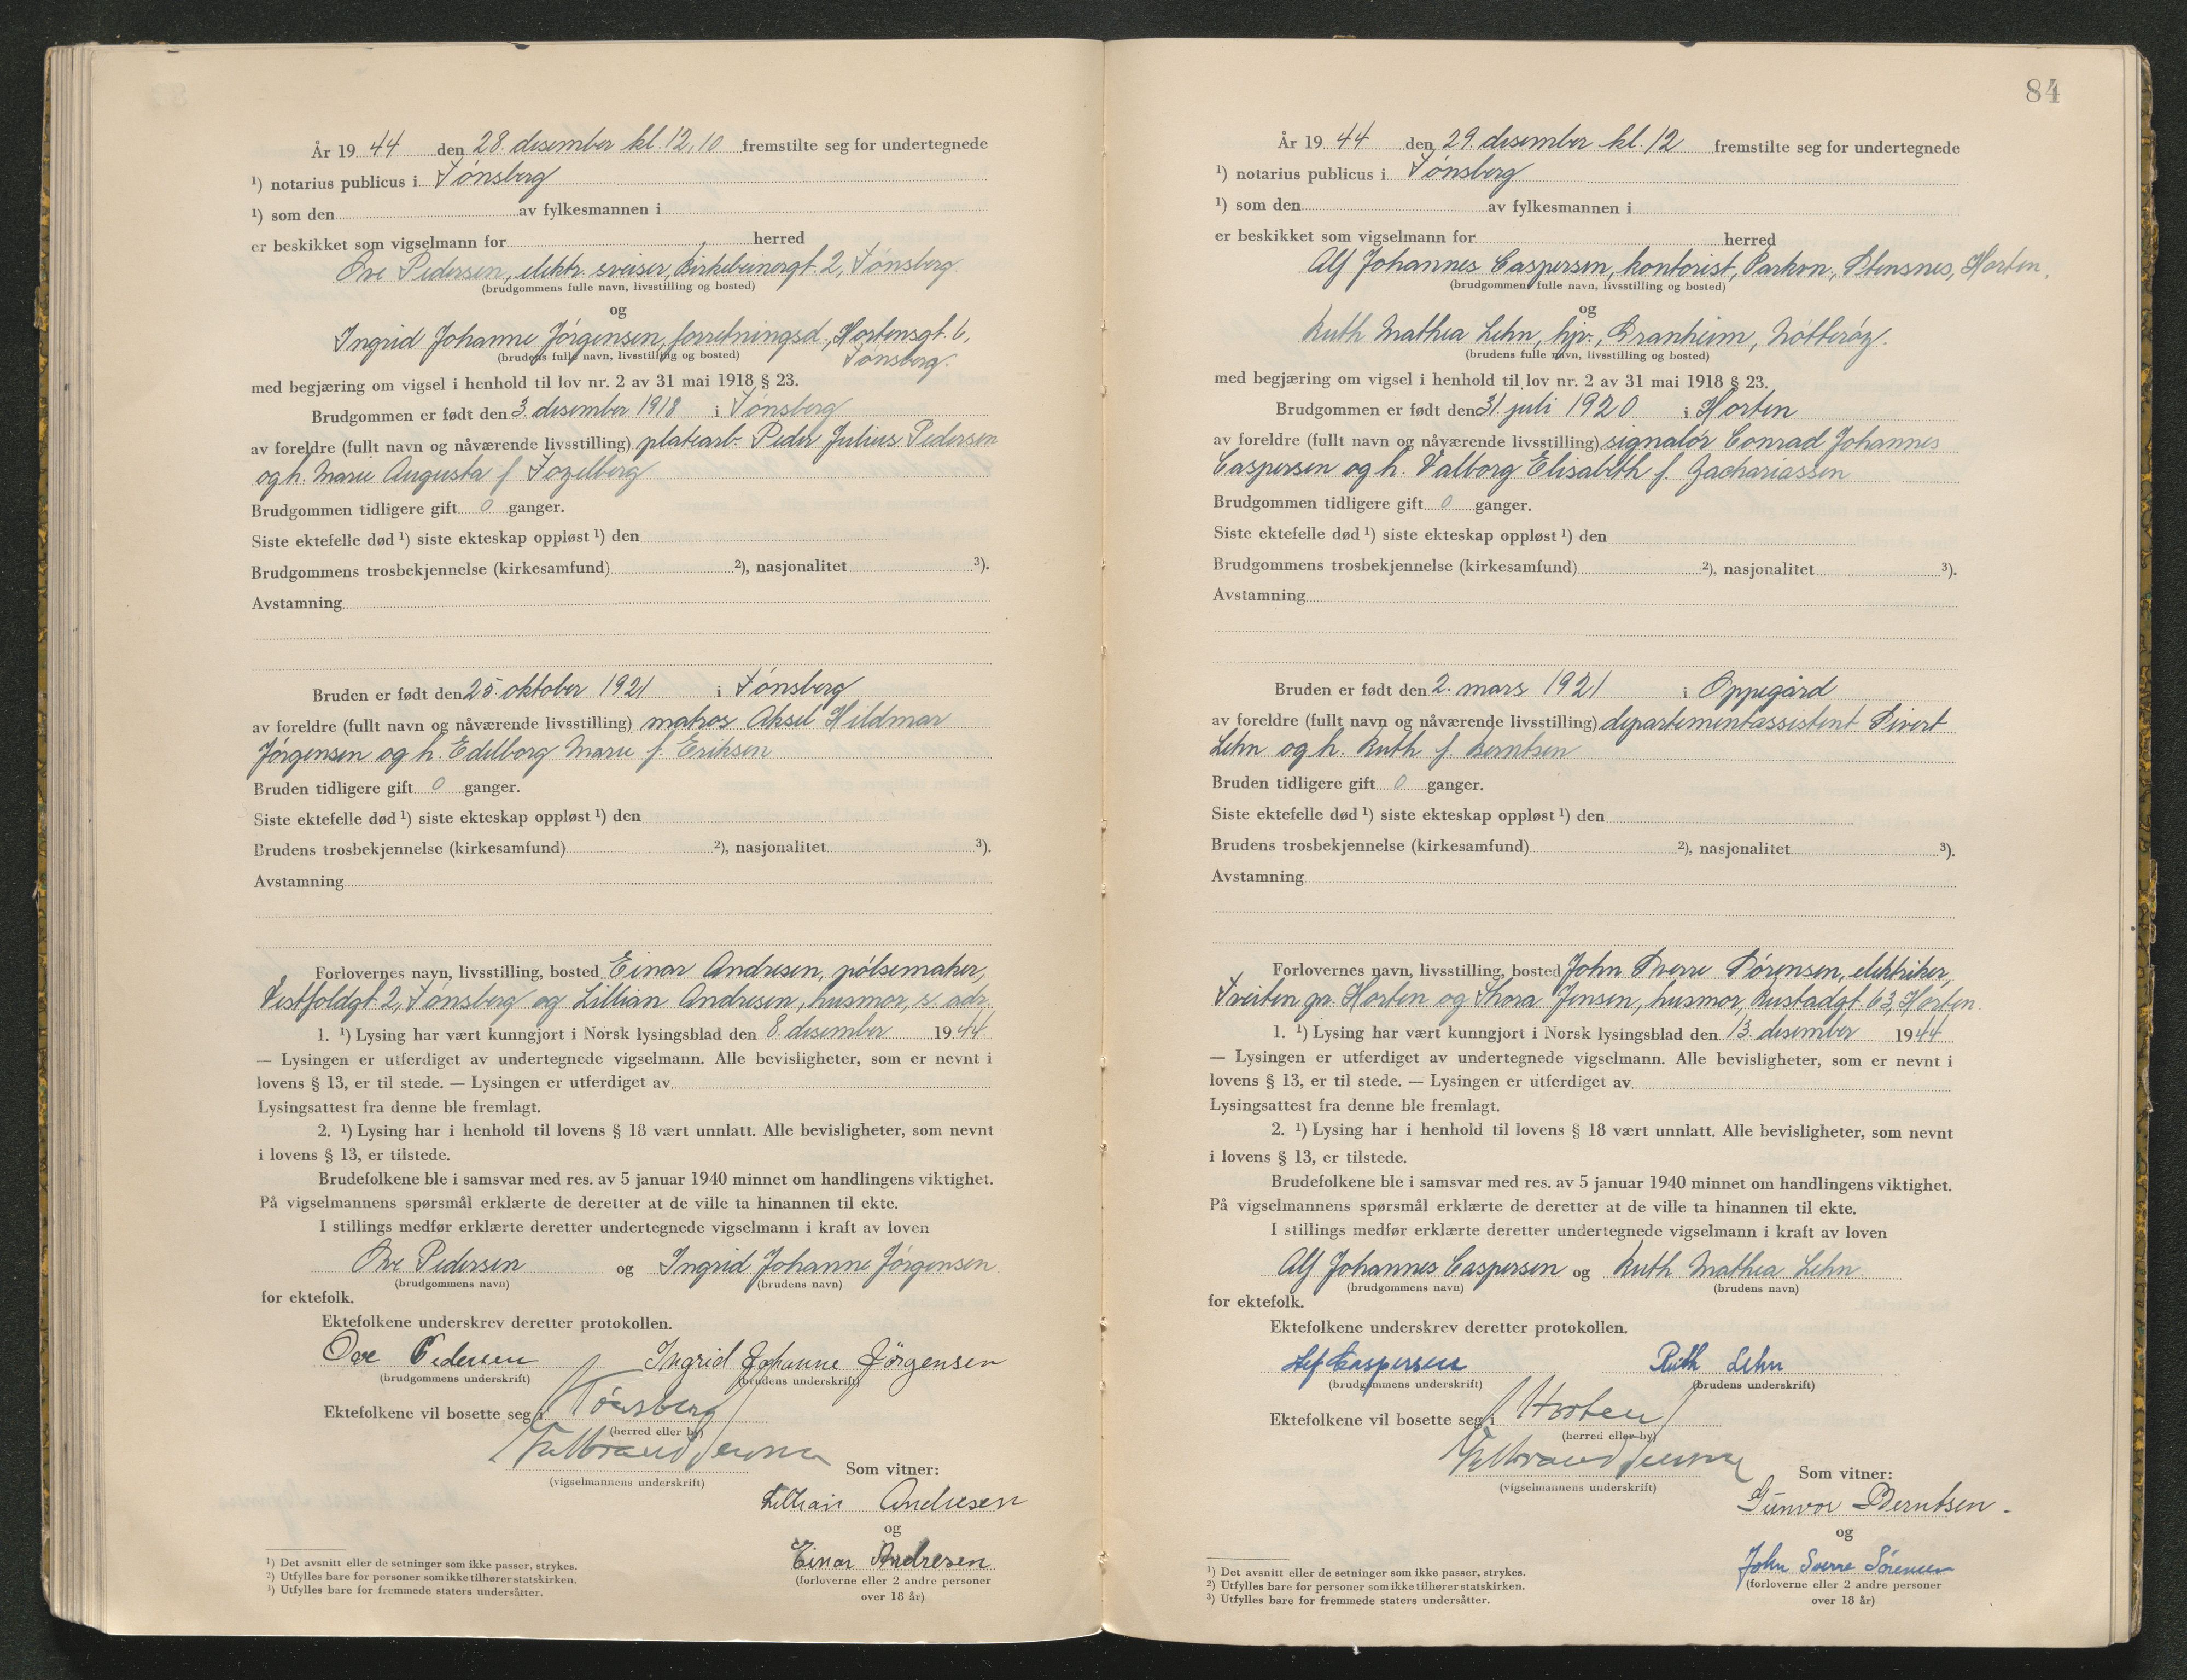 År 1944 den 28. desember kl. 12,10 fremstilte seg for undertegnede
¹) notarius publicus i Tønsberg
¹) som den av fylkesmannen i
er beskikket som vigselmann for herred
Ove Pedersen, elektr. sveiser, Birkebeinergt. 2, Tønsberg
(brudgommens fulle navn, livsstilling og bosted)
og
Ingrid Johanne Jørgensen, forretningsd., Hortensgt. 6,
(brudens fulle navn, livsstilling og bosted) Tønsberg.
med begjæring om vigsel i henhold til lov nr. 2 av 31 mai 1918 § 23.
Brudgommen er født den 3. desember 1918 i Tønsberg
av foreldre (fullt navn og nåværende livsstilling) platearb. Peder Julius Pedersen
og h. Marie Augusta f
Brudgommen tidligere gift 0 ganger.
Siste ektefelle død ¹) siste ekteskap oppløst ¹) den
Brudgommens trosbekjennelse (kirkesamfund) ²), nasjonalitet ³).
Avstamning
Bruden er født den 25. oktober 1921 i Tønsberg
av foreldre (fullt navn og nåværende livsstilling) matros Aksel Hildmar
Jørgensen og h. Edelborg Marie f. Eriksen
Bruden tidligere gift 0 ganger.
Siste ektefelle død ¹) siste ekteskap oppløst ¹) den
Brudens trosbekjennelse (kirkesamfund) ²), nasjonalitet ³).
Avstamning
Forlovernes navn, livsstilling, bosted Einar Andresen, pølsemaker,
Vestfoldgt. 2, Tønsberg og Lillian Andresen, husmor, s. adr.
1. ¹) Lysing har vært kunngjort i Norsk lysingsblad den 8. desember 1944
— Lysingen er utferdiget av undertegnede vigselmann. Alle bevisligheter, som er nevnt i
lovens § 13, er til stede. — Lysingen er utferdiget av
Lysingsattest fra denne ble fremlagt.
2. ¹) Lysing har i henhold til lovens § 18 vært unnlatt. Alle bevisligheter, som nevnt
i lovens § 13, er tilstede.
Brudefolkene ble i samsvar med res. av 5 januar 1940 minnet om handlingens viktighet.
På vigselmannens spørsmål erklærte de deretter at de ville ta hinannen til ekte.
I stillings medfør erklærte deretter undertegnede vigselmann i kraft av loven
Ove Pedersen og Ingrid Johanne Jørgensen
(brudgommens navn) (brudens navn)
for ektefolk.
Ektefolkene underskrev deretter protokollen.
Ove Pedersen Ingrid Johanne Jørgensen
(brudgommens underskrift) (brudens underskrift)
Ektefolkene vil bosette seg i Tønsberg
(herred eller by)
(vigselmannens underskrift)
Som vitner:
Lillian Andresen
og
Einar Andresen
(forloverne eller 2 andre personer
over 18 år)
¹) Det avsnitt eller de setninger som ikke passer, strykes.
²) Utfylles bare for personer som ikke tilhører statskirken.
³) Utfylles bare for fremmede staters undersåtter.
84
År 1944 den 29. desember kl. 12 fremstilte seg for undertegnede
¹) notarius publicus i Tønsberg
¹) som den av fylkesmannen i
er beskikket som vigselmann for herred
Alf Johannes Caspersen, kontorist, Parkvn., Stensnes, Horten.
(brudgommens fulle navn, livsstilling og bosted)
og
Ruth Mathea Lehn, hjv., Granheim, Nøtterøy.
(brudens fulle navn, livsstilling og bosted)
med begjæring om vigsel i henhold til lov nr. 2 av 31 mai 1918 § 23.
Brudgommen er født den 31. juli 1920 i Horten
av foreldre (fullt navn og nåværende livsstilling) signalør Conrad Johannes
Caspersen og h. Valborg Elisabeth f. Zachariassen
Brudgommen tidligere gift 0 ganger.
Siste ektefelle død ¹) siste ekteskap oppløst ¹) den
Brudgommens trosbekjennelse (kirkesamfund) ²), nasjonalitet ³).
Avstamning
Bruden er født den 2. mars 1921 i Oppegård
av foreldre (fullt navn og nåværende livsstilling) departementassistent Sivert
Lehn og h. Ruth f. Berntsen
Bruden tidligere gift 0 ganger.
Siste ektefelle død ¹) siste ekteskap oppløst ¹) den
Brudens trosbekjennelse (kirkesamfund) ²), nasjonalitet ³).
Avstamning
Forlovernes navn, livsstilling, bosted John Sverre Sørensen, elektriker,
Tveiten pr. Horten og Thora Jensen, husmor, Rustadgt. 63, Horten.
1. ¹) Lysing har vært kunngjort i Norsk lysingsblad den 13. desember 1944
— Lysingen er utferdiget av undertegnede vigselmann. Alle bevisligheter, som er nevnt i
lovens § 13, er til stede. — Lysingen er utferdiget av
Lysingsattest fra denne ble fremlagt.
2. ¹) Lysing har i henhold til lovens § 18 vært unnlatt. Alle bevisligheter, som nevnt
i lovens § 13, er tilstede.
Brudefolkene ble i samsvar med res. av 5 januar 1940 minnet om handlingens viktighet.
På vigselmannens spørsmål erklærte de deretter at de ville ta hinannen til ekte.
I stillings medfør erklærte deretter undertegnede vigselmann i kraft av loven
Alf Johannes Caspersen og Ruth Mathea Lehn
(brudgommens navn) (brudens navn)
for ektefolk.
Ektefolkene underskrev deretter protokollen.
Alf Caspersen Ruth Lehn
(brudgommens underskrift) (brudens underskrift)
Ektefolkene vil bosette seg i Horten
(herred eller by)
(vigselmannens underskrift)
Som vitner:
Gunvor Berntsen.
og
John Sverre Sørensen
(forloverne eller 2 andre personer
over 18 år)
¹) Det avsnitt eller de setninger som ikke passer, strykes.
²) Utfylles bare for personer som ikke tilhører statskirken.
³) Utfylles bare for fremmede staters undersåtter.